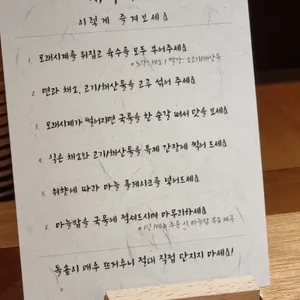 이렇게 즐겨보세요
1. 모래시계를 뒤집고 육수를 모두 부어주세요
2. 면과 채소, 고기/해산물을 고루 섞어 주세요
3. 모래시계가 떨어지면 국물을 한 숟갈 떠서 맛을 보세요
4. 익은 채소와 고기/해산물을 특제 간장에 찍어 드세요
5. 취향에 따라 마늘 플레이크를 넣어드세요
6. 마늘밥을 국물에 적셔드시며 마무리하세요
돌솥이 매우 뜨거우니 절대 직접 만지지 마세요!